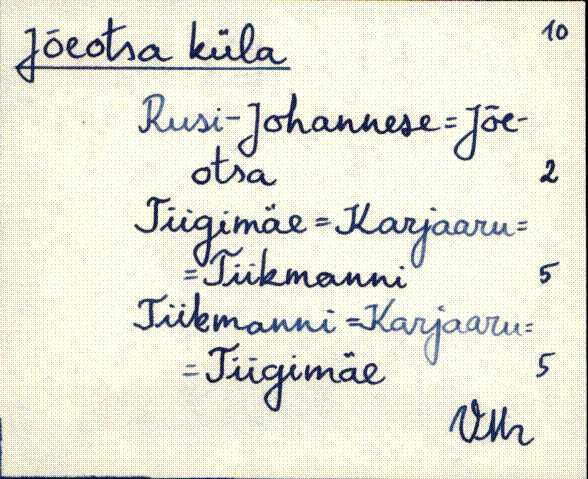 Jõeotsa küla 10
Rusi-Johannese = Jõe-
otsa 2
Tiigimäe = Karjaaru =
= Tiikmanni 5
Tiikmanni = Karjaaru =
= Tiigimäe 5